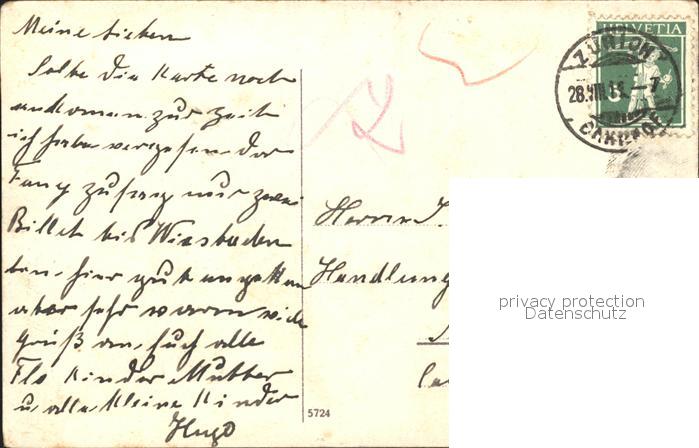 Meine Lieben
Solte die Karte noch
ankomen zur Zeit
ich habe vergesen der
Fany zu sagen nur zwei
Billet bis Wiesbaden
bin hier gut angekom
aber sehr warm viele
Grüß an Euch alle
Flo Kinder Mutter
u. alle kleine Kinder
Hugo
HELVETIA
ZÜRICH
28.VIII.11.—7
Herrn J.
Handlung
5724
privacy protection
Datenschutz